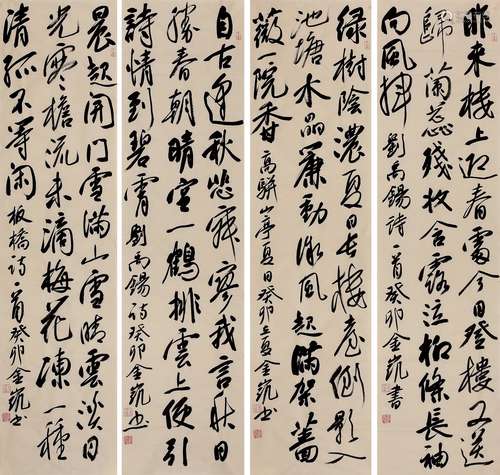 昨来楼上迎春處今日登樓又送
歸蘭蕊殘妆含露泣柳條長袖
向風揮 劉禹錫詩一首癸卯金凯書
綠樹陰濃夏日长楼臺倒影入
池塘水晶簾動微風起滿架薔
薇一院香 高駢山亭夏日癸卯之夏金凯书
自古逢秋悲寂寥我言秋日
勝春朝晴空一鶴排雲上便引
詩情到碧霄 劉禹錫诗癸卯金凯书
晨起開門雪滿山雪晴雲淡日
光寒檐流未滴梅花凍一種
清孤不等闲 板橋诗一首癸卯金凯书